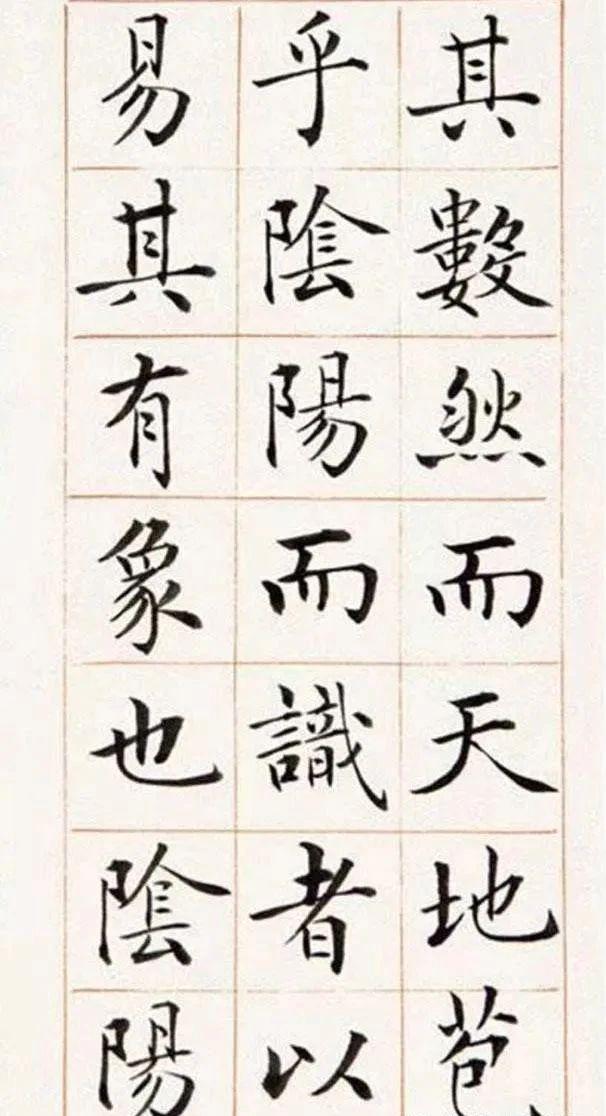 其數然而天地苞
乎陰陽而識者以
易其有象也陰陽